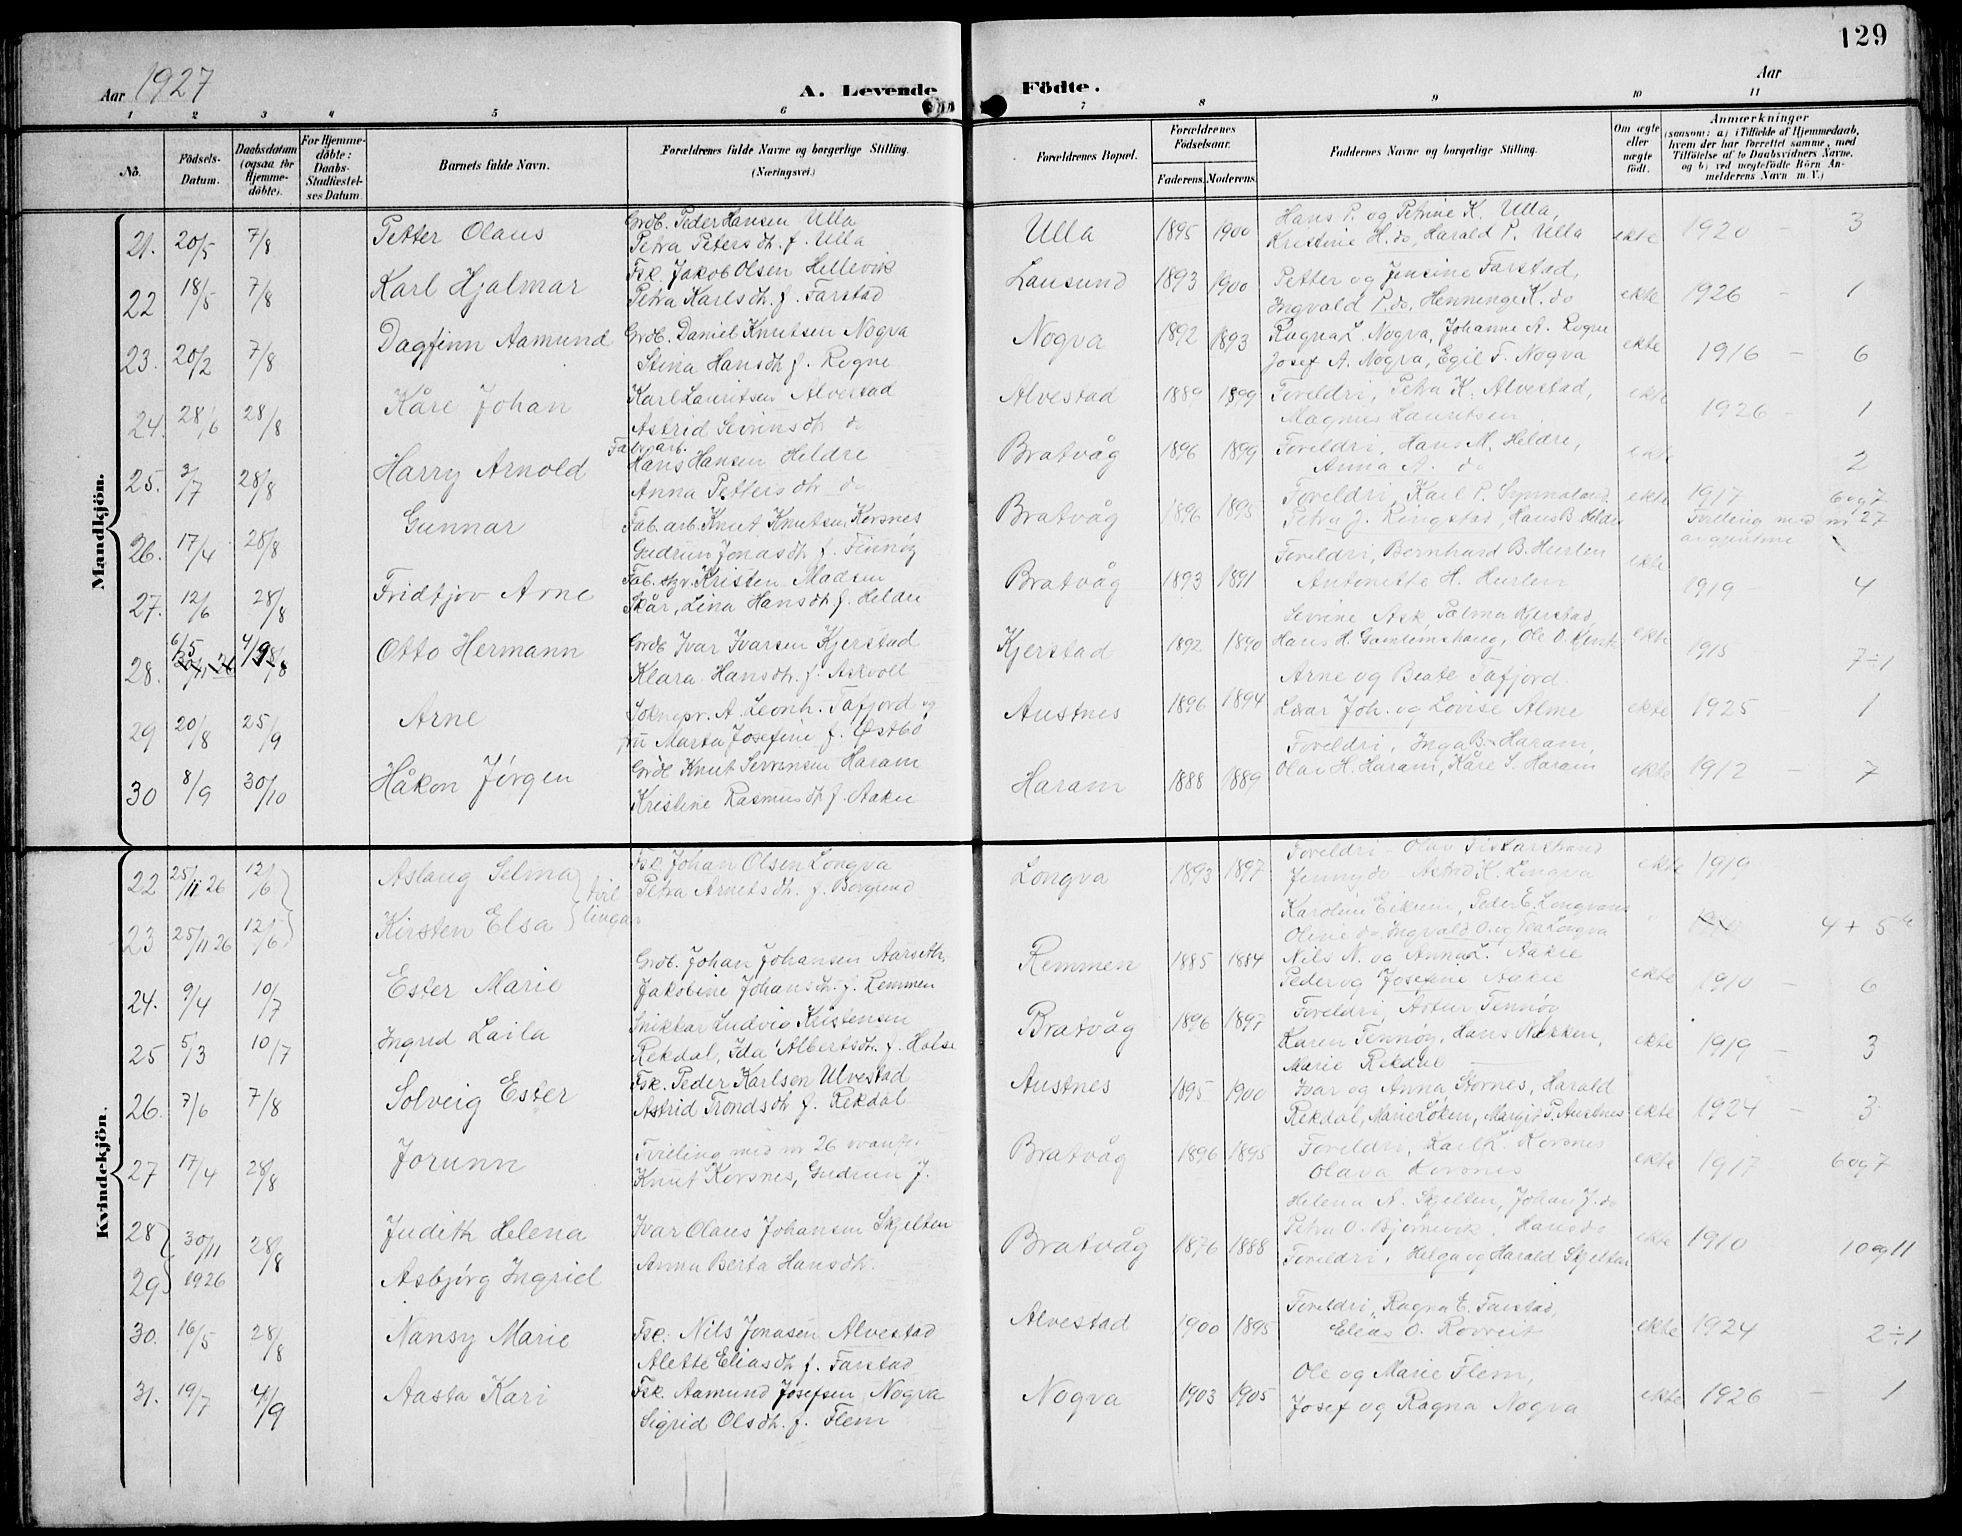 129
Aar 1927
A. Levende Födte.
Aar
1 2 3 4 5 6 7 8 9 10 11
No.
Födsels-Datum.
Daabsdatum (ogsaa for Hjemme-döbte).
For Hjemme-döbte: Daabs-Stadfæstel-ses Datum.
Barnets fulde Navn.
Forældrenes fulde Navne og borgerlige Stilling. (Næringsvei.)
Forældrenes Bopæl.
Forældrenes Födselsaar.
Faderens. Moderens.
Faddernes Navne og borgerlige Stilling.
Om ægte eller uægte födt.
Anmærkninger
(saasom: a) i Tilfælde af Hjemmedaab, hvem der har forrettet samme, med Tilföielse af to Daabsvidners Navne, og b) ved uegtefödte Börn An-melderens Navn m. V.)
Mandkjön.
21. 20/5 7/8 Petter Olaus Grdb. Peder Hansen Ulla Ulla 1895 1900 Hans P. og Petrine K. Ulla, ekte 1920 - 3
Petra Petersdtr. f. Ulla Kristine H. do, Harald P. Ulla
22 18/5 7/8 Karl Hjalmar Fsk. Jakob Olsen Hellevik Lausund 1893 1900 Petter og Jensine Farstad, ekte 1926 - 1
Petra Karlsdtr. f. Farstad Ingvald P. do, Henninge K. do
23. 20/2 7/8 Dagfinn Aamund Grdb. Daniel Knutsen Nogva Nogva 1892 1893 Ragna L. Nogva, Johanne A. Rogne ekte 1916 - 6
Stina Hansdtr f. Rogne Josef A. Nogva, Egil F. Nogva
24. 28/6 28/8 Kåre Johan Karl Lauritsen Alvestad Alvestad 1889 1899 Foreldri, Petra K. Alvestad, ekte 1926 - 1
Astrid Sevrinsdtr do Magnus Lauritsen
25. 3/7 28/8 Harry Arnold Fabr. arb. Hans Hansen Heldre Bratvåg 1896 1899 Foreldri, Hans M. Heldre, ekte 2
Anna Pettersdtr do Anna A. do
26. 17/4 28/8 Gunnar Fab. arb. Knut Knutsen Korsnes Bratvåg 1896 1895 Foreldri, Karl P. ekte 1917 6 og 7
Gudrun Jonasdtr f. Finnøy Petra J. Ringstad, Hans B. Heldre Tvilling med nr 27
27. 12/6 28/8 Fridtjov Arne Fab. Kristen Madsen Bratvåg 1893 1891 Foreldri, Bernhard B. Hurlen ekte 1919 - 4
Skår, Lina Hansdtr f. Heldre Antonette H. Hurlen
28. 6/5 4/9 Otto Hermann Grdb Ivar Ivarsen Kjerstad Kjerstad 1892 1890 Sevrine Ask, Palma Kjerstad, ekte 1915 7÷1
Klara Hansdtr. f. Askvoll Hans H. Gamlemshaug, Ole O.
29 20/8 25/9 Arne Soknepr. A. Leonh. Tafjord og Austnes 1896 1894 Arne og Beate Tafjord. ekte 1925 1
fru Marta Josefine f. Østbø Lovise Alme
30 8/9 30/10 Håkon Jørgen Grdb Knut Sevrinsen Haram Haram 1888 1889 Foreldri, Inga B. Haram, ekte 1912 - 7
Kristine Rasmusdtr f. Aakre Olav H. Haram, Kåre S. Haram
Kvindekjön.
22 25/11 26 12/6 Aslaug Selma Fsk. Johan Olsen Longva Longva 1893 1897 Foreldri - Olav Fiskarstrand ekte 1919
tvil lingar Petra Arnetsdtr. f. Borgund Jenny do Astrid K. Longva
23 25/11 26 12/6 Kirsten Elsa Karoline Eikrem, Peder E. Longva 4 + 5
Oline do, Ingvald O. og Longva
24. 9/4 10/7 Ester Marie Grdb. Johan Johansen Aarseth, Remmen 1885 1884 Nils N. og Anna L. Aakre ekte 1910 - 6
Jakobine Johansdtr. f. Remmen Peder og Josefine Aakre
25 5/3 10/7 Ingrid Laila Snikkar Ludvig Kristensen Bratvåg 1896 1897 Foreldri, Artur Tennøy ekte 1919 - 3
Rekdal, Ida Albertsdtr. f. Holse Karen Tennøy, Hans Nerken,
Marie Rekdal
26. 7/6 7/8 Solveig Ester Fsk. Peder Karlsen Ulvestad Austnes 1895 1900 Ivar og Anna Stornes, Harald ekte 1924 - 3
Astrid Trondsdtr f. Rekdal Rekdal, Marie Løken, Margit P. Austnes
27 17/4 28/8 Jorunn Tvilling med nr 26 ovanfor Bratvåg 1896 1895 Foreldri, Karl L. Korsnes ekte 1917 6 og 7
Knut Korsnes, Gudrun J. Olava Korsnes
28 30/11 28/8 Judith Helena Ivar Olaus Johansen Skjelten Bratvåg 1876 1888 Helena A. Skjelten, Johan J. do ekte 1910 10 og 11
Petra O. Bjørnevik, Hans do
29 1926 Asbjørg Ingrid Anna Berta Hansdtr. Foreldri, Helga og Harald Skjelten
30. 16/5 28/8 Nansy Marie Fsk: Nils Jonasen Alvestad Alvestad 1900 1895 Foreldri, Ragna E. Farstad, ekte 1924 2÷1
Alette Eliasdtr f. Farstad Elias O.
31. 19/7 4/9 Aasta Kari Fsk. Aamund Josefsen Nogva Nogva 1903 1905 Ole og Marie Flem, ekte 1926 - 1
Sigrid Olsdtr. f. Flem Josef og Ragna Nogva